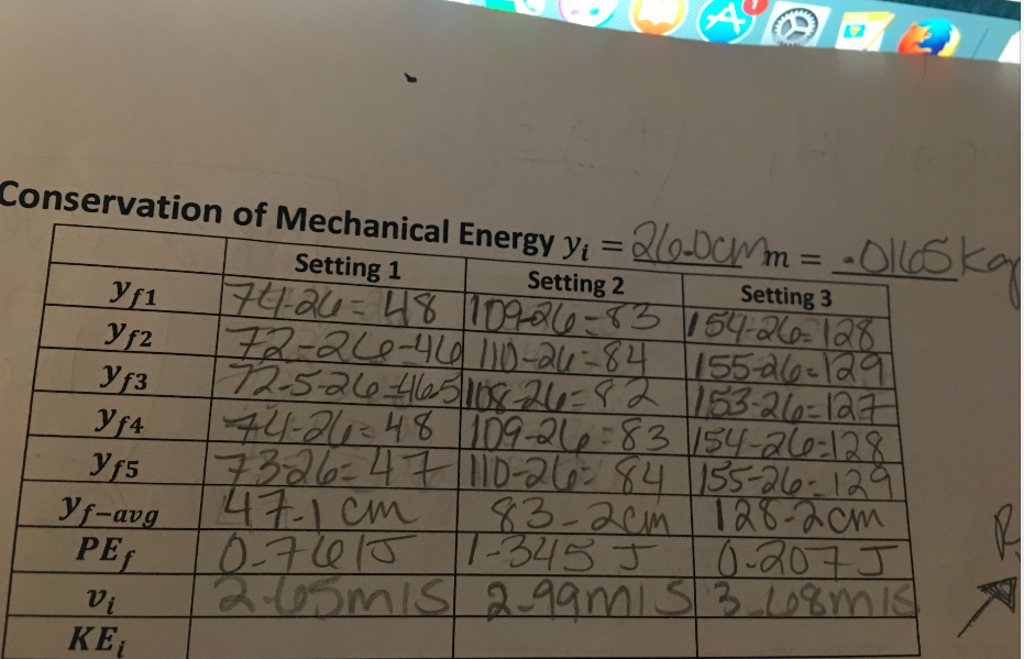 Conservation of Mechanical Energy yᵢ = 26.0cm m = .0165kg
Setting 1 Setting 2 Setting 3
y_f1 74-26=48 109-26=83 154-26=128
y_f2 72-26=46 110-26=84 155-26=129
y_f3 72.5-26=46.5 108-26=82 153-26=127
y_f4 74-26=48 109-26=83 154-26=128
y_f5 73-26=47 110-26=84 155-26=129
y_f-avg 47.1 cm 83.2cm 128.2cm
PE_f 0.761J 1.345 J 0.207 J
vᵢ 2.65m/s 2.99m/s 3.68m/s
KEᵢ